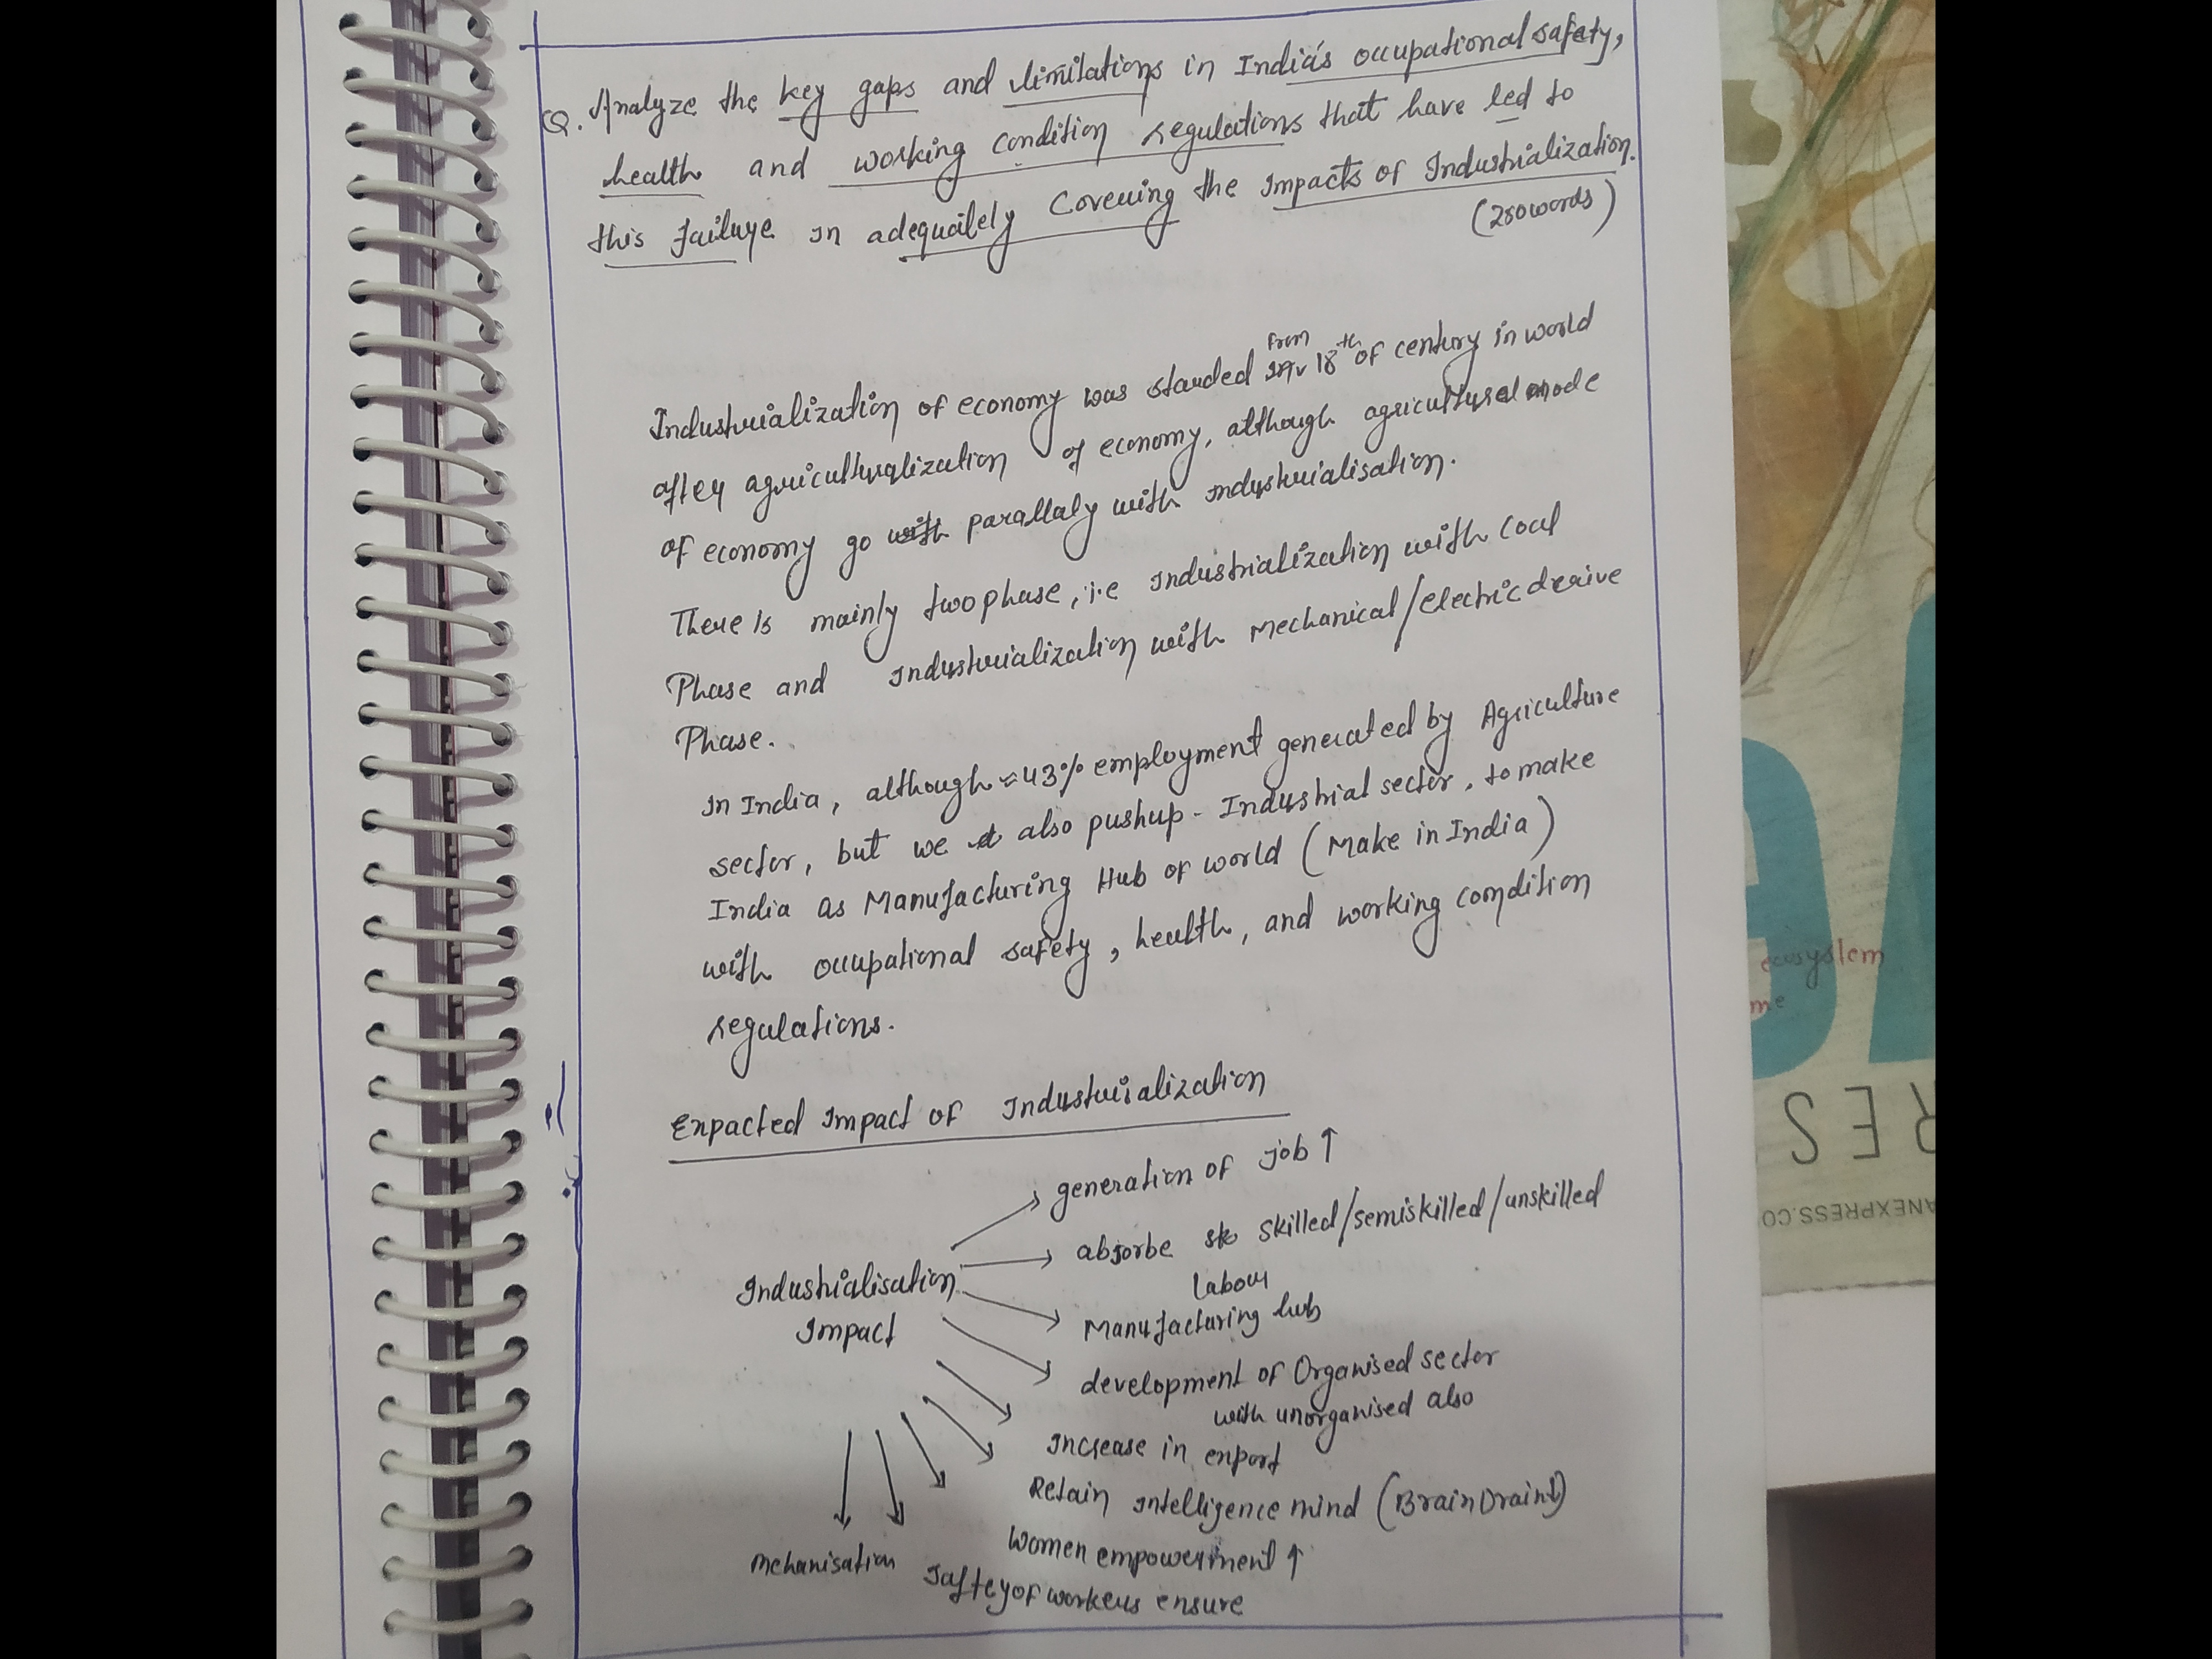 Q. Analyze the key gaps and limitations in India's occupational safety,
health and working condition regulations that have led to
this failure in adequately covering the impacts of Industrialization.
(250words)
Industrialization of economy was starded from 18th of century in world
after agriculturalization of economy, although agricultural mode
of economy go with parallaly with industrialisation.
There is mainly two phase, i.e industrialization with coal
Phase and industrialization with Mechanical/electric derive
Phase.
In India, although ≈43% employment generated by Agriculture
sector, but we also pushup - Industrial sector, to make
India as Manufacturing Hub of world (Make in India)
with occupational safety, health, and working condition
regulations.
Expacted Impact of Industrialization
Industrialisation
Impact
generation of job ↑
absorbe sk skilled/semiskilled/unskilled
labour
Manufacturing hub
development of Organised sector
with unorganised also
Increase in export
Retain intelligence mind (Brain Drain↓)
Women empowerment ↑
Saftey of workers ensure
Mchanisation
ecosystem
me
RES
ANEXPRESS.CO